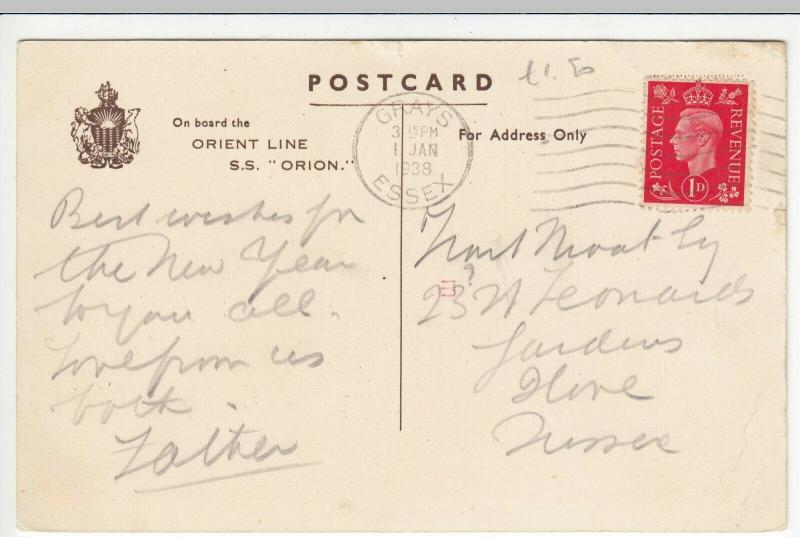 POSTCARD
On board the
ORIENT LINE
S.S. "ORION."
For Address Only
£1.50
GRAYS
3 15PM
1 JAN
1938
ESSEX
POSTAGE
REVENUE
1D
Best wishes for
the New Year
to you all.
Love from us
both.
Father
23 St Leonards
Gardens
Hove
Sussex